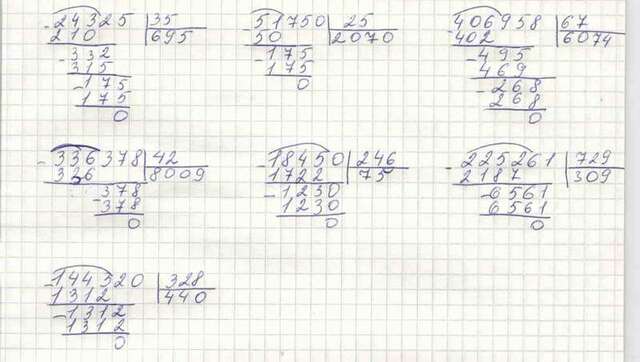 -24325 | 35
210 | 695
-332
315
-175
175
0
-51750 | 25
50 | 2070
-175
175
0
-406958 | 67
402 | 6074
-495
469
-268
268
0
-336378 | 42
336 | 8009
-378
378
0
-18450 | 246
1722 | 75
-1230
1230
0
-225261 | 729
2187 | 309
-6561
6561
0
-144320 | 328
1312 | 440
-1312
1312
0